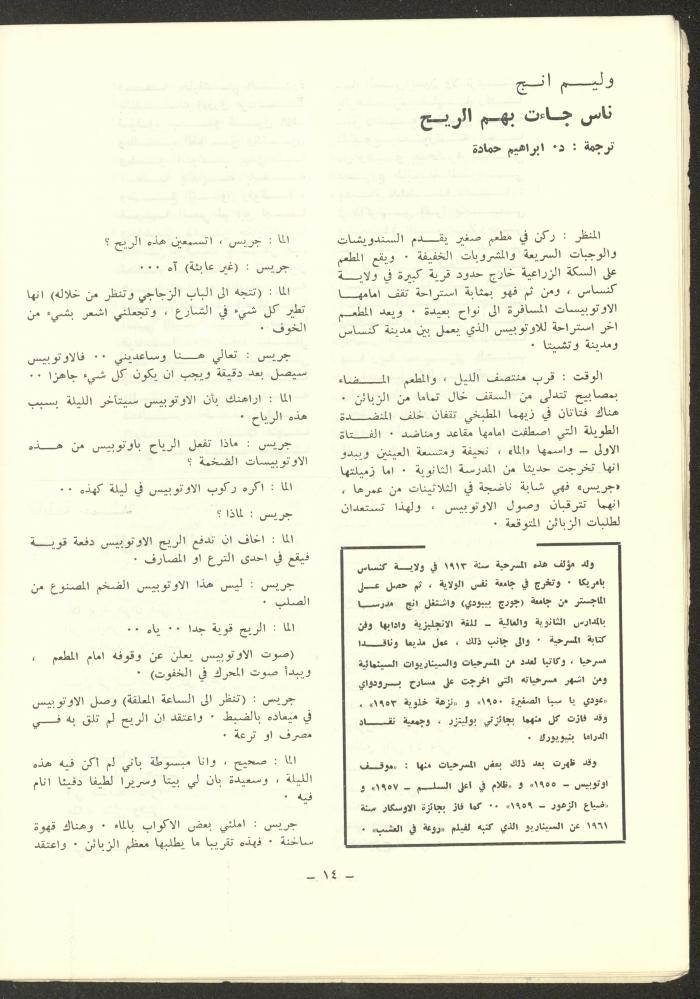 وليـــم انـج
ناس جـاءت بهـم الريـح
ترجمة : د٠ ابراهيم حمادة
المنظر : ركن في مطعم صغير يقـدم السندويشات
والوجبات السريعة والمشروبات الخفيفة ٠ ويقع المطعم
على السكة الزراعية خارج حدود قرية كبيرة في ولايـة
كنساس ، ومن ثم فهو بمثابة استراحة تقف امامهـا
الاوتوبيسات المسافرة الى نواح بعيدة ٠ ويعد المطعـم
اخر استراحة للاوتوبيس الذي يعمل بين مدينة كنساس
ومدينة وتشيتا ٠
الوقت : قرب منتصف الليل ، والمطعم المـضـاء
بمصابيح تتدلى من السقف خال تماما من الزبائن ٠
هناك فتاتان في زيهما المطبخي تقفان خلف المنضـدة
الطويلة التي اصطفت امامها مقاعد ومناضد ٠ الفـتاة
الاولى ــ واسمها «الما» ، نحيفة ومتسعة العينين ويبدو
انها تخرجت حديثا من المدرسة الثانوية ٠ اما زميلتها
«جريس» فهي شابة ناضجة في الثلاثينات من عمرها ،
انهما تترقبان وصول الاوتوبيس ، ولهذا تستعدان
لطلبات الزبائن المتوقعة ٠
ولد مؤلف هذه المسرحية سنة ١٩١٣ في ولايـة كنساس
بامريكا ٠ وتخرج في جامعة نفس الولاية ، ثم حصل عـلى
الماجستر من جامعة (جورج بيبودي) واشتغل انج مدرسـا
بالمدارس الثانوية والعالية ــ للغة الانجليزية وادابها وفن
كتابة المسرحية ٠ والى جانب ذلك ، عمل مذيعا وناقـدا
مسرحيا ، وكاتبا لعدد من المسرحيات والسيناريوات السينمائية
ومن اشهر مسرحياته التي اخرجت على مسارح بـرودواي
«عودي يا سبا الصغيرة ١٩٥٠» و «نزهة خلوية ١٩٥٣» ،
وقد فازت كل منهما بجائزتي بوليتزر ، وجمعية نقـاد
الدراما بنيويورك ٠
وقد ظهرت بعد ذلك بعض المسرحيات منها : «موقـف
اوتوبيس ــ ١٩٥٥» و «ظلام في اعلى السلـم ــ ١٩٥٧» و
«ضياع الزهور ــ ١٩٥٩» ٠٠ كما فاز بجائزة الاوسكار سنة
١٩٦١ عن السيناريو الذي كتبه لفيلم «روعة في العشب» ٠
الما : جريس ، اتسمعين هذه الريح ؟
جريس : (غير عابئة) آه ٠٠٠
الما : (تتجه الى الباب الزجاجي وتنظر من خلاله) انها
تطير كل شيء في الشارع ، وتجعلني اشعر بشيء من
الخوف ٠
جريس : تعالي هـنا وساعديني ٠٠ فالاوتوبيس
سيصل بعد دقيقة ويجب ان يكون كل شيء جاهزا ٠٠
الما : اراهنك بان الاوتوبيس سيتاخر الليلة بسبب
هذه الرياح ٠
جريس : ماذا تفعل الرياح باوتوبيس من هـذه
الاوتوبيسات الضخمة ؟
الما : اكره ركوب الاوتوبيس في ليلة كهذه ٠٠
جريس : لماذا ؟
الما : اخاف ان تدفع الريح الاوتوبيس دفعة قويـة
فيقع في احدى الترع او المصارف ٠
جريس : ليس هذا الاوتوبيس الضخم المصنوع من
الصلب ٠
الما : الريح قوية جدا ٠٠ ياه ٠٠
(صوت الاوتوبيس يعلن عن وقوفه امام المطعم ،
ويبدأ صوت المحرك في الخفوت) ٠
جريس : (تنظر الى الساعة المعلقة) وصل الاوتوبيس
في ميعاده بالضبط ٠ واعتقد ان الريح لم تلق به فـي
مصرف او ترعة ٠
الما : صحيح ، وانا مبسوطة باني لم اكن فيه هذه
الليلة ، وسعيدة بان لي بيتا وسريرا لطيفا دفيئا انام
فيه ٠
جريس : املئي بعض الاكواب بالماء ٠ وهناك قهوة
ساخنة ٠ فهذه تقريبا ما يطلبها معظم الزبائن ٠ واعتقد
ــ ١٤ ــ